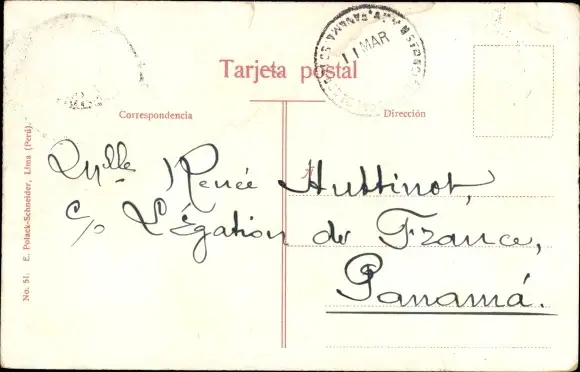 Tarjeta postal
Correspondencia
Dirección
Mlle Renée Huttinot,
c/o Légation de France,
Panamá.
No. 51. E. Polack-Schneider, Lima (Perú).
PANAMA
11 MAR
A